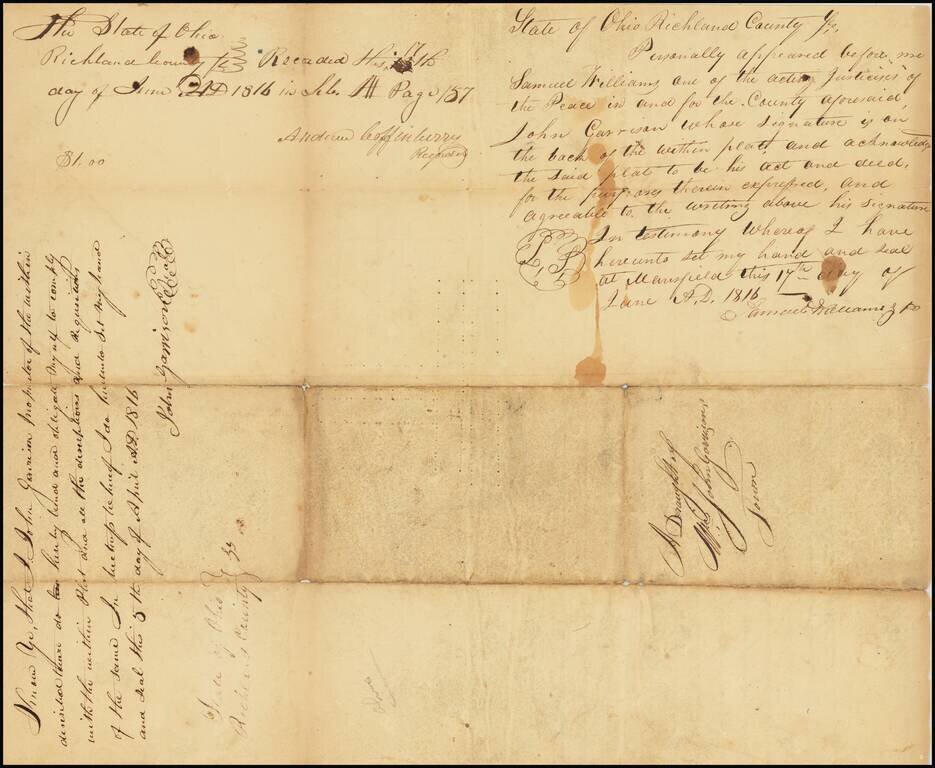 The State of Ohio
Richland County Ss Recorded this
day of June AD 1816 in Lib. A Page 157
Andrew Coffinberry
Recorder
$1.00
State of Ohio Richland County Ss.
Personally appeared before me
Samuel Williams one of the acting Justices of
the Peace in and for the County aforesaid,
John Garrison whose signature is on
the back of the within plat, and acknowledge
the said plat to be his act and deed,
for the purposes therein expressed, and
agreeable to the writing above his signature
In testimony Whereof I have
hereunto set my hand and seal
at Mansfield this 17th day of
June A.D. 1816
Samuel Williams J P
Know Ye, that I John Garrison Proprietor of the within
described town do hereby bind and obligate myself to comply
with the within Plat and all the descriptions and requisitions
of the same In behalf I do hereunto set my hand
and seal this 5th day of April A.D. 1816
John Garrison Seal
State of Ohio
Richland County Ss
A Draught of
John Garrisons
Town